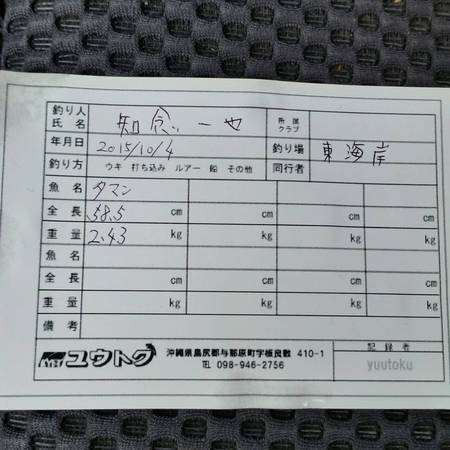 釣り人氏名 知念一也 所属クラブ
年月日 2015/10/4 釣り場 東海岸
釣り方 ウキ 打ち込み ルアー 船 その他 同行者
魚名 タマン
全長 58.5 cm cm cm cm
重量 2.43 kg kg kg kg
魚名
全長 cm cm cm cm
重量 kg kg kg kg
備考
ユウトク 沖縄県島尻郡与那原町字板良敷 410-1 記録者
TEL 098-946-2756 yuutoku